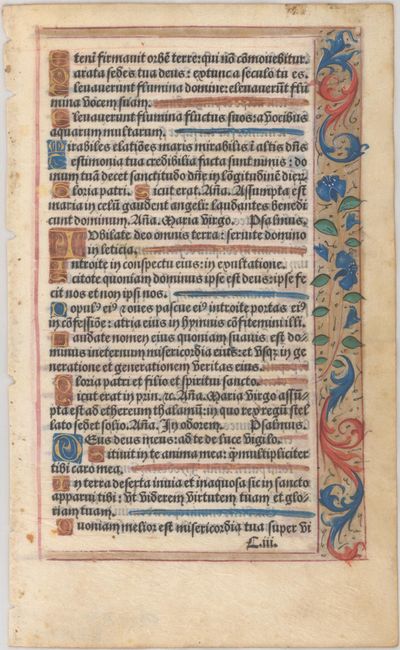 tenī firmauit orbē terre: qui nō cōmouebitur.
Parata sedes tua deus: extunc a seculo tu es.
Eleuauerunt flumina domine: eleuauerūt flu
mina vocem suam.
Eleuauerunt flumina fluctus suos: a vocibus
aquarum multarum.
Mirabiles elatiōes maris mirabilis ī altis dn̄s
Testimonia tua credibilia facta sunt nimis: do
mum tuā decet sanctitudo dn̄e in lōgitudinē dierꝝ
Gloria patri. Sicut erat. Añа. Assumpta est
maria in celū gaudent angeli: laudantes benedi
cunt dominum. Aña. Maria virgo. Psalmus.
IUbilate deo omnis terra: seruite domino
in leticia.
Introite in conspectu eius: in exultatione.
Scitote quoniam dominus ipse est deus: ipse fe
cit nos et non ipsi nos.
Populꝰ eiꝰ et oues pascue eiꝰ introite portas eiꝰ
in cōfessiōe: atria eius in hymnis cōfitemini illi.
Laudate nomen eius quoniam suauis est do-
minus ineternum misericordia eius: et vsqꝫ in ge
neratione et generationem veritas eius.
Gloria patri et filio et spiritui sancto.
Sicut erat in prin. ꝛc. Aña. Maria virgo assū-
pta est ad ethereum thalamū: in quo rex regū stel
lato sedet solio. Aña. In odorem. Psalmus.
DEus deus meus: ad te de luce vigilo.
Sitiuit in te anima mea: q̄ multipliciter
tibi caro mea.
In terra deserta inuia et inaquosa sic in sancto
apparui tibi: vt viderem virtutem tuam et glo-
riam tuam.
Quoniam melior est misericordia tua super vi
C.iii.